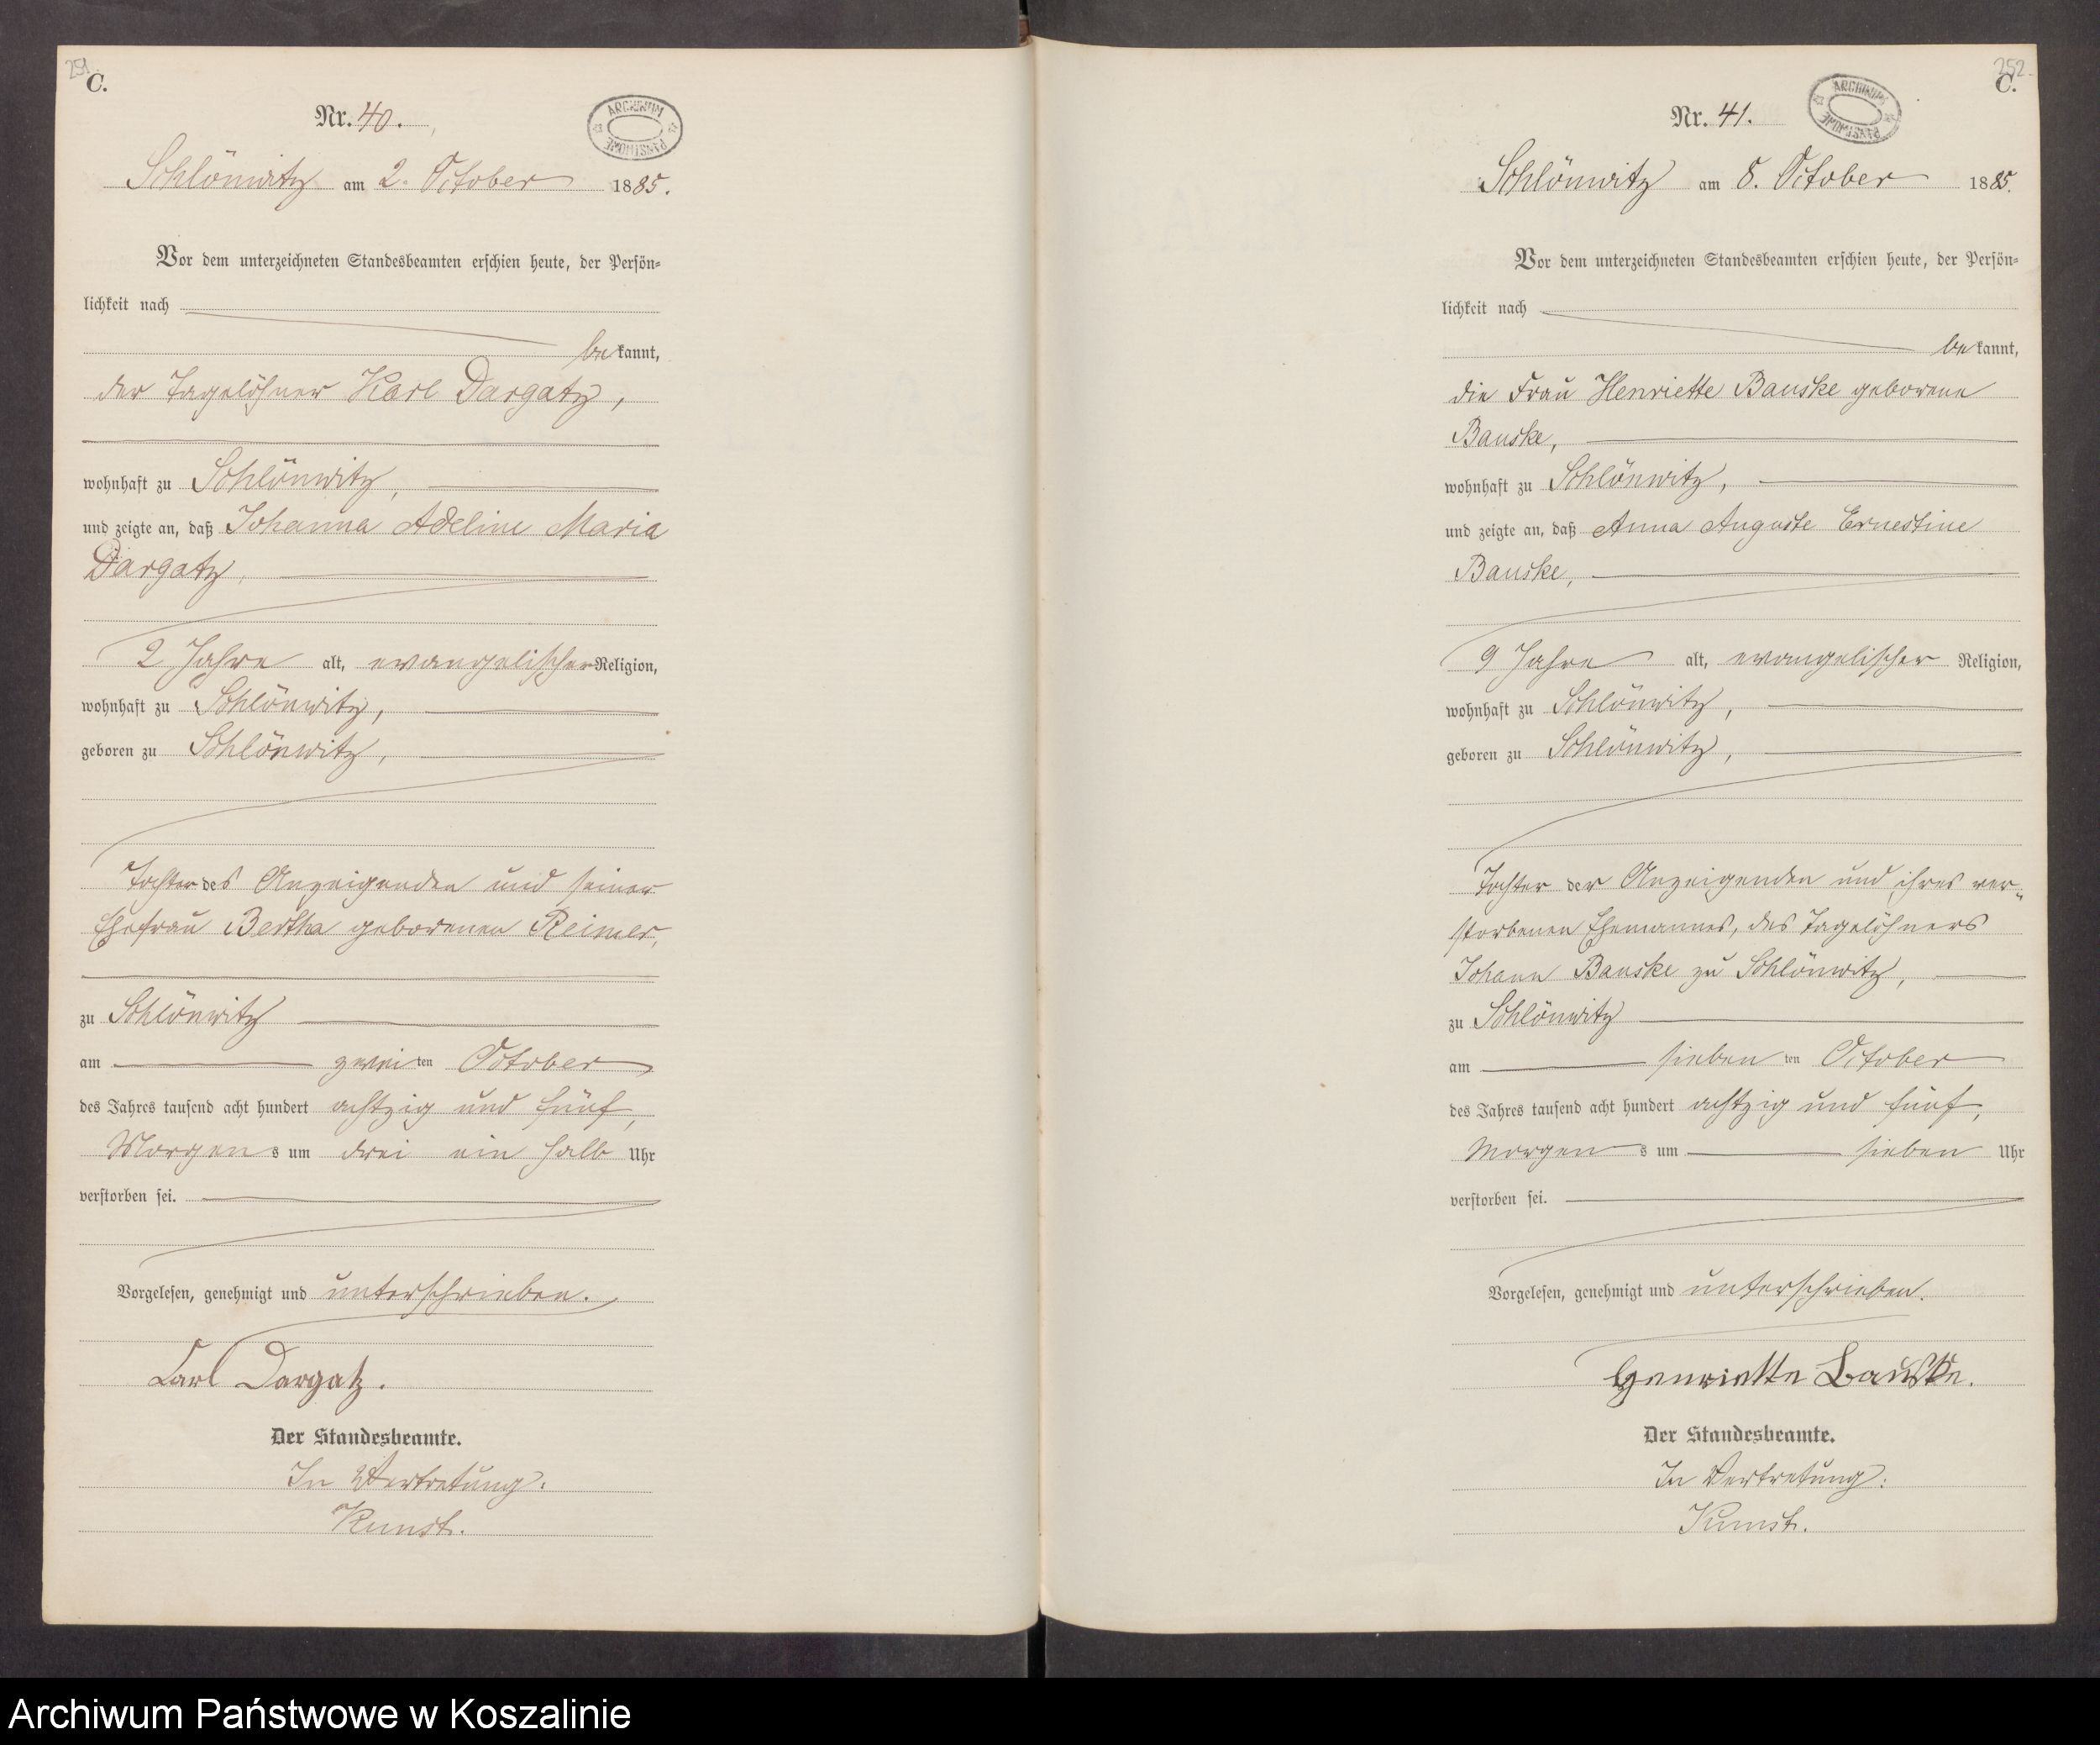 251.
C.
Nr. 40.
ARCHIWUM PAŃSTWOWE
Schlönwitz am 2. October 1885.
Vor dem unterzeichneten Standesbeamten erschien heute, der Persön-
lichkeit nach
bekannt,
der Tagelöhner Karl Dargatz,
wohnhaft zu Schlönwitz,
und zeigte an, daß Johanna Adeline Maria
Dargatz,
2 Jahre alt, evangelischer Religion,
wohnhaft zu Schlönwitz,
geboren zu Schlönwitz,
Tochter des Anzeigenden und seiner
Ehefrau Bertha geborenen Reimer,
zu Schlönwitz
am zweiten October
des Jahres tausend acht hundert achtzig und fünf,
Morgens um drei ein halb Uhr
verstorben sei.
Vorgelesen, genehmigt und unterschrieben.
Carl Dargatz.
Der Standesbeamte.
In Vertretung:
Kunst.
252.
C.
Nr. 41.
ARCHIWUM PAŃSTWOWE
Schlönwitz am 8. October 1885.
Vor dem unterzeichneten Standesbeamten erschien heute, der Persön-
lichkeit nach
bekannt,
die Frau Henriette Bauske geborene
Bauske,
wohnhaft zu Schlönwitz,
und zeigte an, daß Anna Auguste Ernestine
Bauske,
9 Jahre alt, evangelischer Religion,
wohnhaft zu Schlönwitz,
geboren zu Schlönwitz,
Tochter der Anzeigenden und ihres ver-
storbenen Ehemannes, des Tagelöhners
Johann Bauske zu Schlönwitz,
zu Schlönwitz
am siebenten October
des Jahres tausend acht hundert achtzig und fünf,
Morgens um sieben Uhr
verstorben sei.
Vorgelesen, genehmigt und unterschrieben.
Henriette Bauske.
Der Standesbeamte.
In Vertretung:
Kunst.
Archiwum Państwowe w Koszalinie